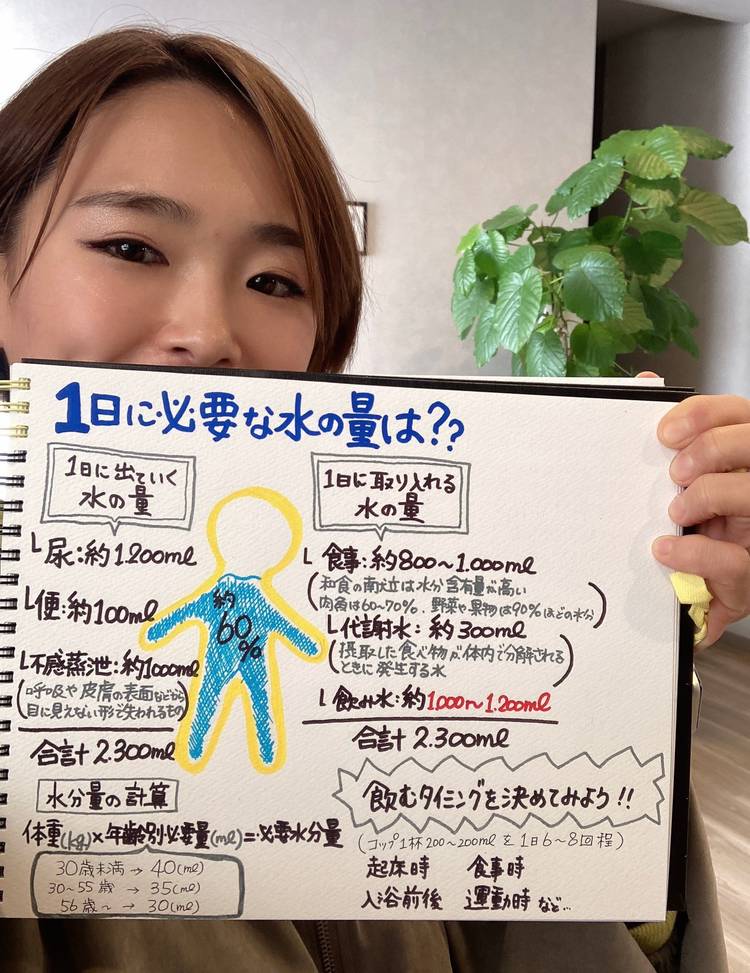 1日に必要な水の量は??
1日に出ていく
水の量
尿:約1.200ml
便:約100ml
不感蒸泄:約1000ml
(呼吸や皮膚の表面などから
目に見えない形で失われるもの)
合計 2.300ml
約
60%
1日に取り入れる
水の量
食事:約800〜1.000ml
(和食の献立は水分含有量が高い
肉魚は60〜70%.野菜や果物は90%ほどの水分)
代謝水:約300ml
(摂取した食べ物が体内で分解される
ときに発生する水)
飲み水:約1000〜1.200ml
合計 2.300ml
水分量の計算
体重(kg)×年齢別必要量(ml)=必要水分量
30歳未満→40(ml)
30〜55歳→35(ml)
56歳〜→30(ml)
飲むタイミングを決めてみよう!!
(コップ1杯200〜200mlを1日6〜8回程)
起床時 食事時
入浴前後 運動時 など...